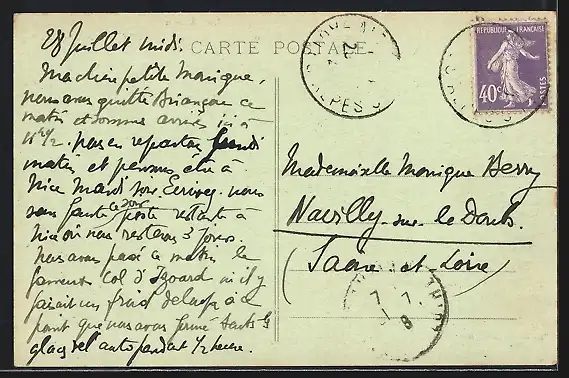 28 Juillet midi.
CARTE POSTALE
Ma chère petite Monique,
nous avons quitté Briançon ce
matin et sommes arrivés ici à
11h 1/2. nous en repartons lundi
matin et pensons être à
Nice Mardi soir Ecrivez nous
sans faute ce soir poste restante à
Nice où nous resterons 3 jours.
nous avons passé ce matin le
fameux col d'Izoard où il y
faisait un froid de loup à ce
point que nous avons fermé toutes les
glaces de l'auto pendant 1/2 heure.
REPUBLIQUE FRANCAISE
40c
POSTES
Mademoiselle Monique Berry
Navilly-sur-le Doubs
(Saône et Loire)